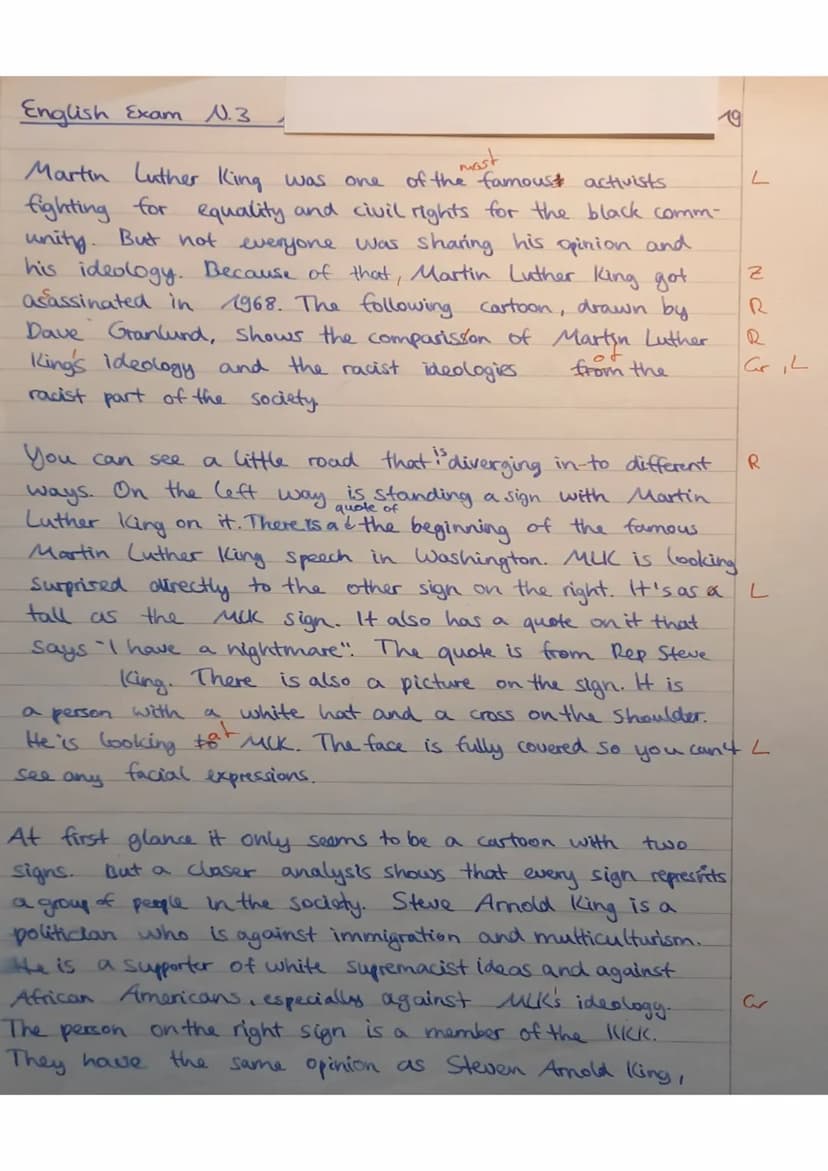 English Exam N.3
19
Martin Luther King was one of the most famoust activists L
fighting for equality and civil rights for the black comm-
unity. But not everyone was sharing his opinion and
his ideology. Because of that, Martin Luther King got Z
asassinated in 1968. The following cartoon, drawn by R
Dave Granlund, shows the comparission of Martin Luther R
King's ideology and the racist ideologies from of the Gr, L
racist part of the society
You can see a little road that is diverging in to different R
ways. On the left way is standing a sign with Martin
Luther King on it. There is a quote of the beginning of the famous
Martin Luther King speech in Washington. MLK is looking
surprised directly to the other sign on the right. It's as a L
tall as the MLK sign. It also has a quote on it that
says "I have a nightmare". The quote is from Rep Steve
King. There is also a picture on the sign. It is
a person with a white hat and a cross on the shoulder.
He is looking to at MLK. The face is fully covered so you can't L
see any facial expressions.
At first glance it only seems to be a cartoon with two
signs. But a closer analysis shows that every sign represents
a group of people in the society. Steve Arnold King is a
politician who is against immigration and multiculturism.
He is a supporter of white supremacist ideas and against
African Americans, especially against MLK's ideology. Gr
The person on the right sign is a member of the KKK.
They have the same opinion as Steven Arnold King,